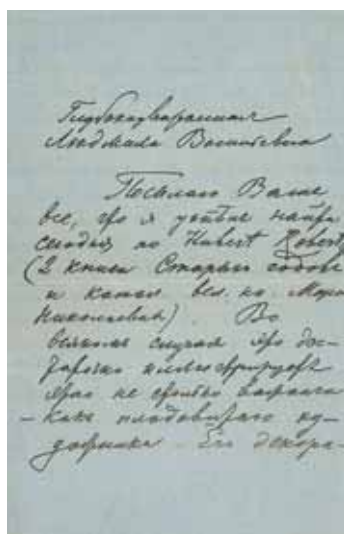 Глубокоуважаемая
Людмила Васильевна
Посылаю Вамъ
все, что я успѣлъ найти
сегодня по Hubert Robert
(2 книги Старыхъ годовъ
и катал. вел. кн. Маріи
Николаевны). Во
всякомъ случаѣ это дос-
таточно иллюстрируетъ
его не столько
– какъ плодовитаго ху-
дожника. Его декора-